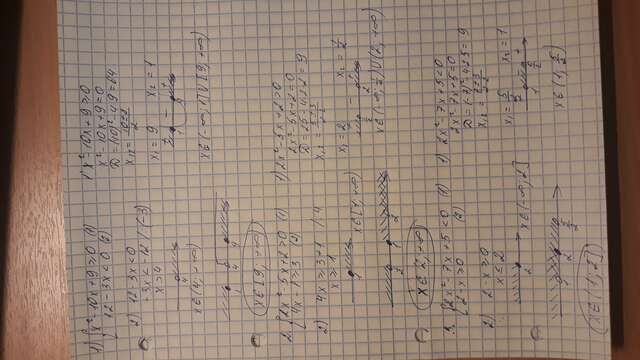 1) { x² - 10x + 9 ≥ 0 (1)
{ 12 - 3x < 0 (2)
1) x² - 10x + 9 ≥ 0
x² - 10x + 9 = 0
x₁ = 9 x₂ = 1
x∈(-∞, 1]∪[9, +∞)
2) 12 - 3x < 0
-3x < -12 /(-3)
x > 4
x∈(4, +∞)
x∈[9, +∞)
2. { 2x² - 5x + 2 > 0 (1)
{ 4x - 1 ≥ 3 (2)
1) 2x² - 5x + 2 > 0
2x² - 5x + 2 = 0
D = 25 - 4·2·2 = 9
x₂ = 1/2
x∈(-∞, 1/2)∪(2, +∞)
2) 4x ≥ 3 + 1 /4
x ≥ 1
x∈[1, +∞)
x∈(2, +∞)
3. { 2x² - 7x + 5 < 0 (1)
{ 2 - x ≥ 0 (2)
1) 2x² - 7x + 5 < 0
2x² - 7x + 5 = 0
x₁ = 5/2 x₂ = 1
x∈(1, 5/2)
2) 2 - x ≥ 0
x ≤ 2
x∈(-∞, 2]
x∈(1, 2]